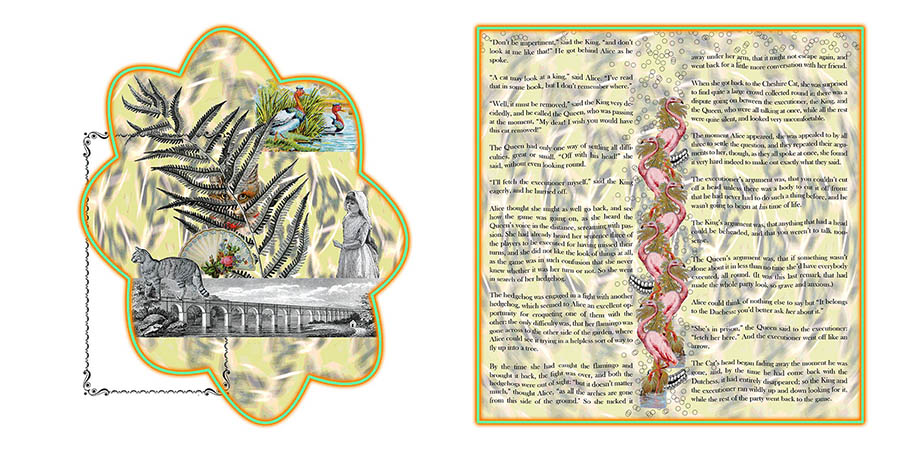 "Don't be impertinent," said the King, "and don't
look at me like that!" He got behind Alice as he
spoke.
"A cat may look at a king," said Alice. "I've read
that in some book, but I don't remember where."
"Well, it must be removed," said the King very de-
cidedly, and he called the Queen, who was passing
at the moment, "My dear! I wish you would have
this cat removed!"
The Queen had only one way of settling all diffi-
culties, great or small. "Off with his head!" she
said, without even looking round.
"I'll fetch the executioner myself," said the King
eagerly, and he hurried off.
Alice thought she might as well go back, and see
how the game was going on, as she heard the
Queen's voice in the distance, screaming with pas-
sion. She had already heard her sentence three of
the players to be executed for having missed their
turns, and she did not like the look of things at all,
as the game was in such confusion that she never
knew whether it was her turn or not. So she went
in search of her hedgehog.
The hedgehog was engaged in a fight with another
hedgehog, which seemed to Alice an excellent op-
portunity for croqueting one of them with the
other: the only difficulty was, that her flamingo was
gone across to the other side of the garden, where
Alice could see it trying in a helpless sort of way to
fly up into a tree.
By the time she had caught the flamingo and
brought it back, the fight was over, and both the
hedgehogs were out of sight: "but it doesn't matter
much," thought Alice, "as all the arches are gone
from this side of the ground." So she tucked it
away under her arm, that it might not escape again, and
went back for a little more conversation with her friend.
When she got back to the Cheshire Cat, she was surprised
to find quite a large crowd collected round it: there was a
dispute going on between the executioner, the King, and
the Queen, who were all talking at once, while all the rest
were quite silent, and looked very uncomfortable.
The moment Alice appeared, she was appealed to by all
three to settle the question, and they repeated their argu-
ments to her, though, as they all spoke at once, she found
it very hard indeed to make out exactly what they said.
The executioner's argument was, that you couldn't cut
off a head unless there was a body to cut it off from:
that he had never had to do such a thing before, and he
wasn't going to begin at his time of life.
The King's argument was, that anything that had a head
could be beheaded, and that you weren't to talk non-
sense.
The Queen's argument was, that if something wasn't
done about it in less than no time she'd have everybody
executed, all round. (It was this last remark that had
made the whole party look so grave and anxious.)
Alice could think of nothing else to say but "It belongs
to the Duchess: you'd better ask her about it."
"She's in prison," the Queen said to the executioner:
"fetch her here." And the executioner went off like an
arrow.
The Cat's head began fading away the moment he was
gone, and, by the time he had come back with the
Dutchess, it had entirely disappeared; so the King and
the executioner ran wildly up and down looking for it,
while the rest of the party went back to the game.